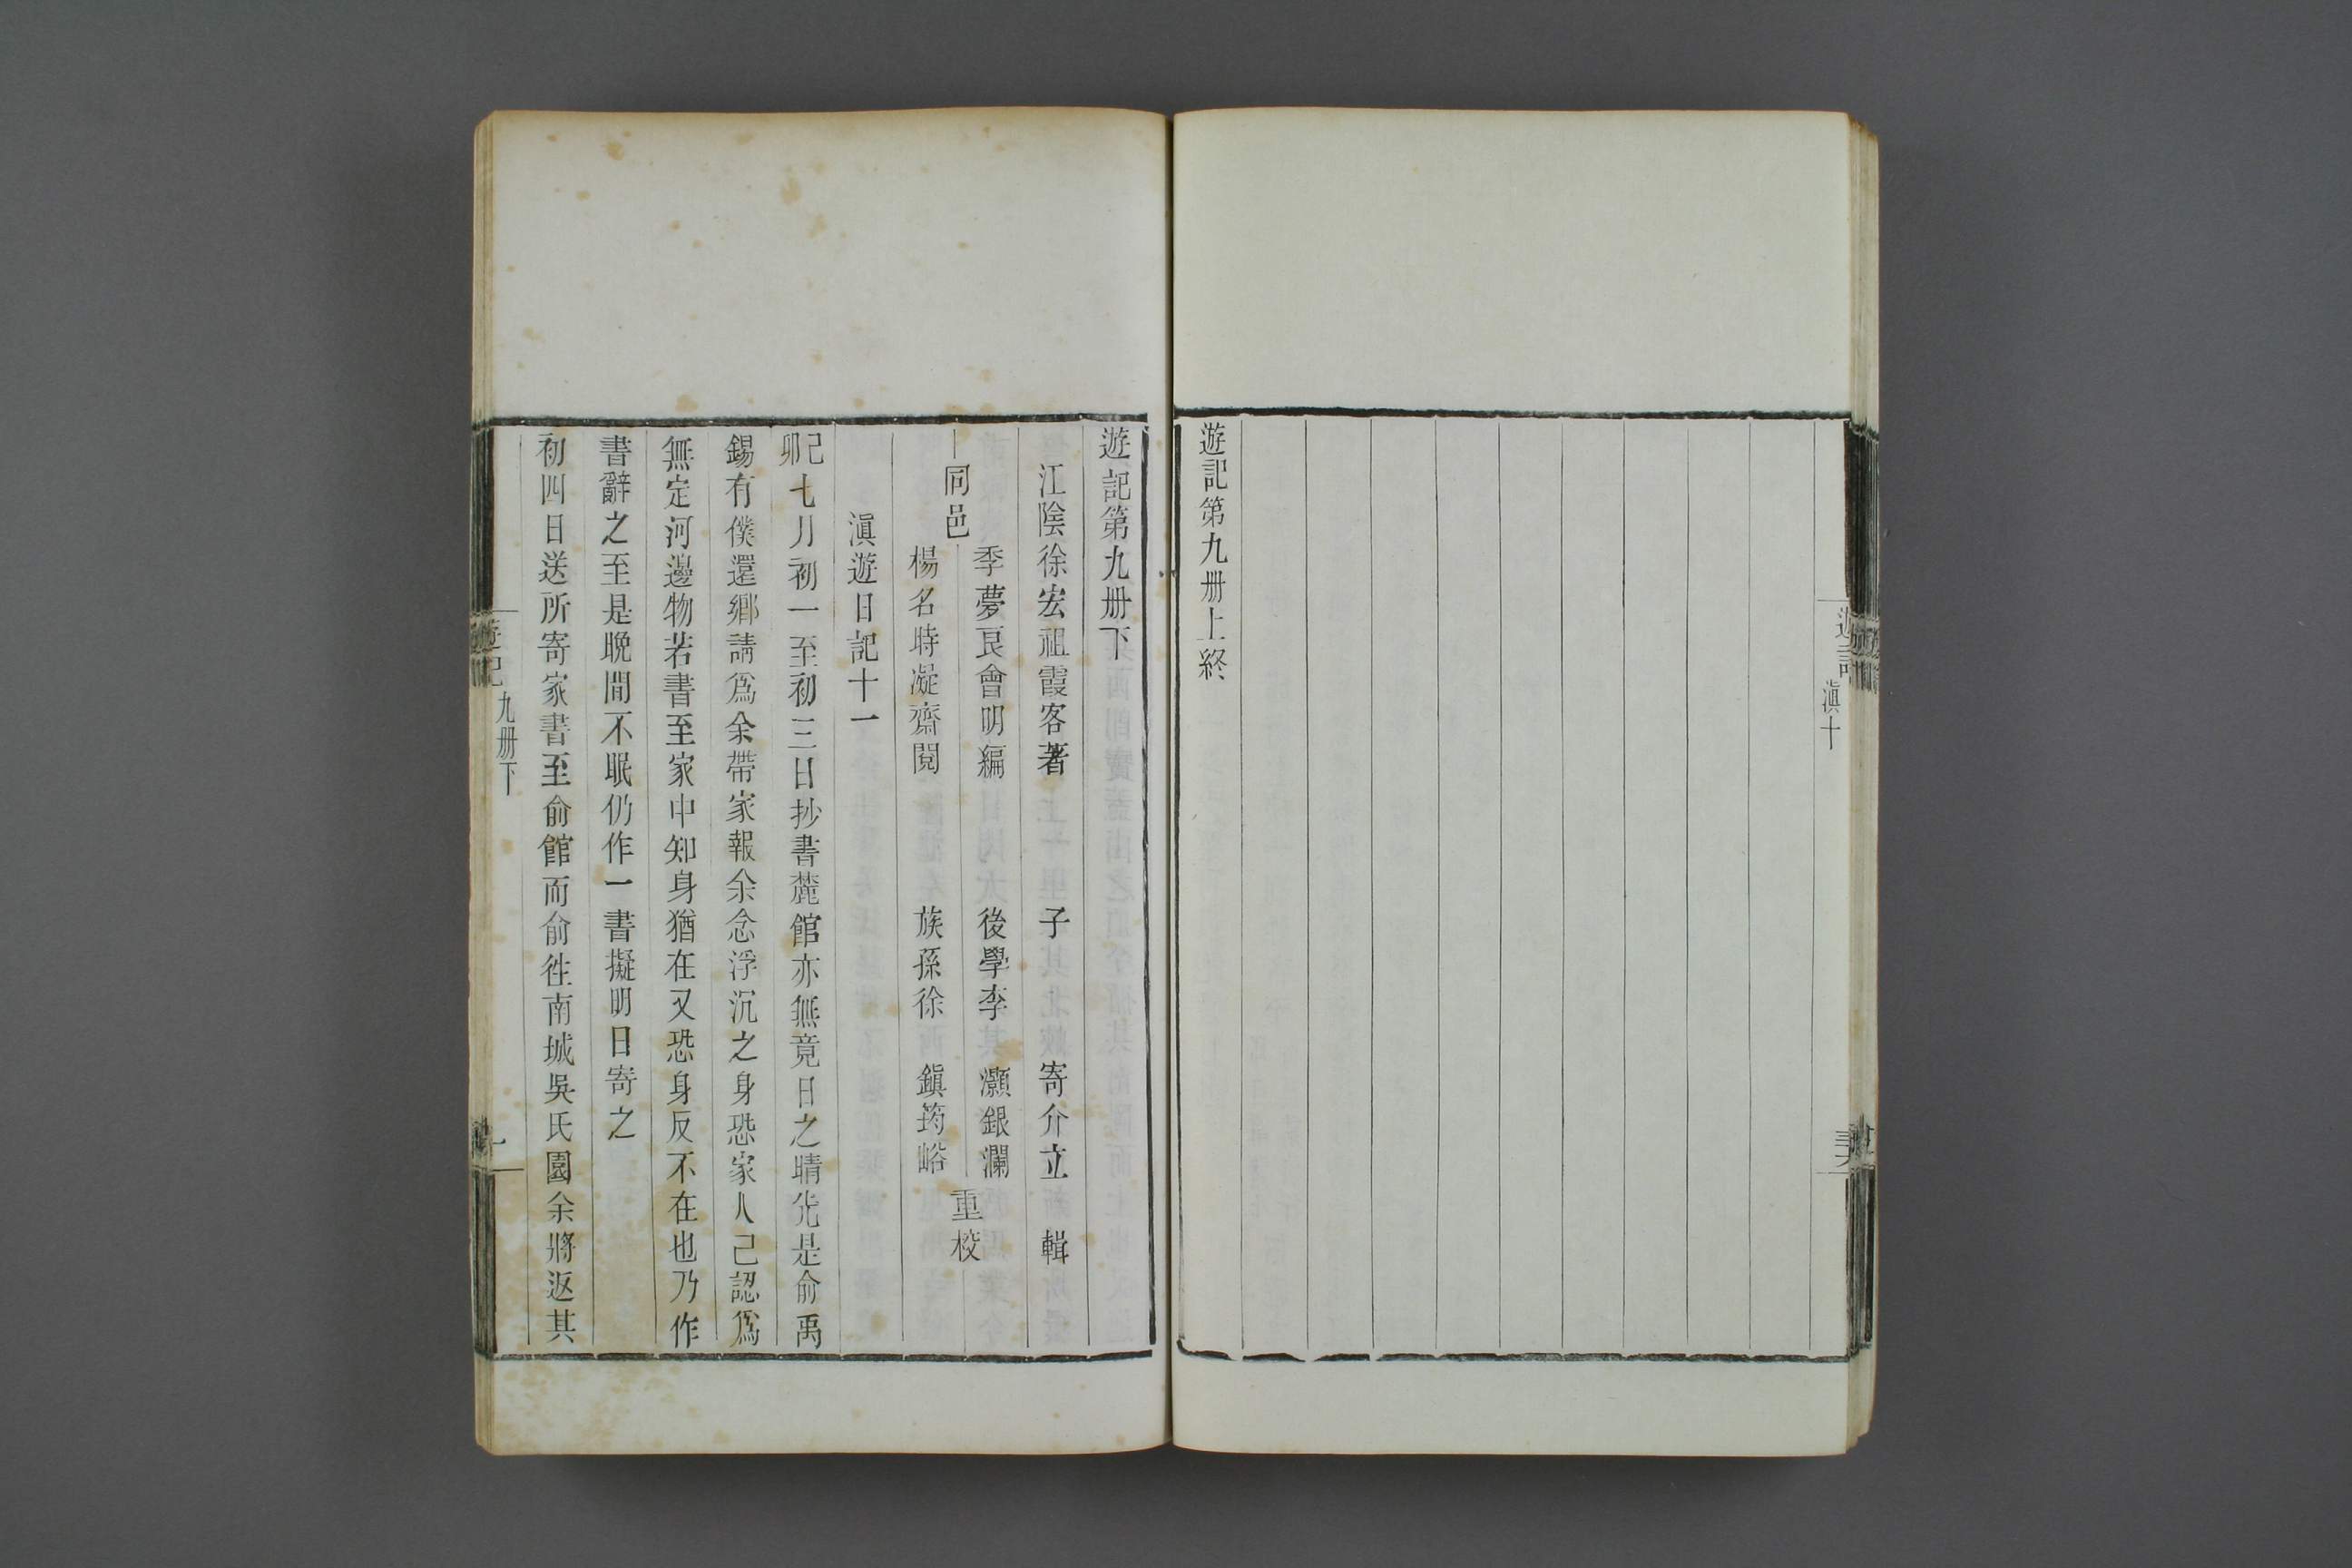 遊記
滇十
遊記第九册上終
遊記第九册下
江陰徐宏祖霞客著　子　寄介立　輯
同邑
季夢良會明編　後學李　灝銀瀾
楊名時凝齋閱　族孫徐　鎮筠峪
重校
滇遊日記十一
己卯七月初一至初三日抄書麓館亦無竟日之晴光是俞禹
錫有僕還鄉請爲余帶家報余念浮沉之身恐家人已認爲
無定河邊物若書至家中知身猶在又恐身反不在也乃作
書辭之至是晚間不眠仍作一書擬明日寄之
初四日送所寄家書至俞館而俞徃南城吳氏園余將返其
遊記
九册下
一